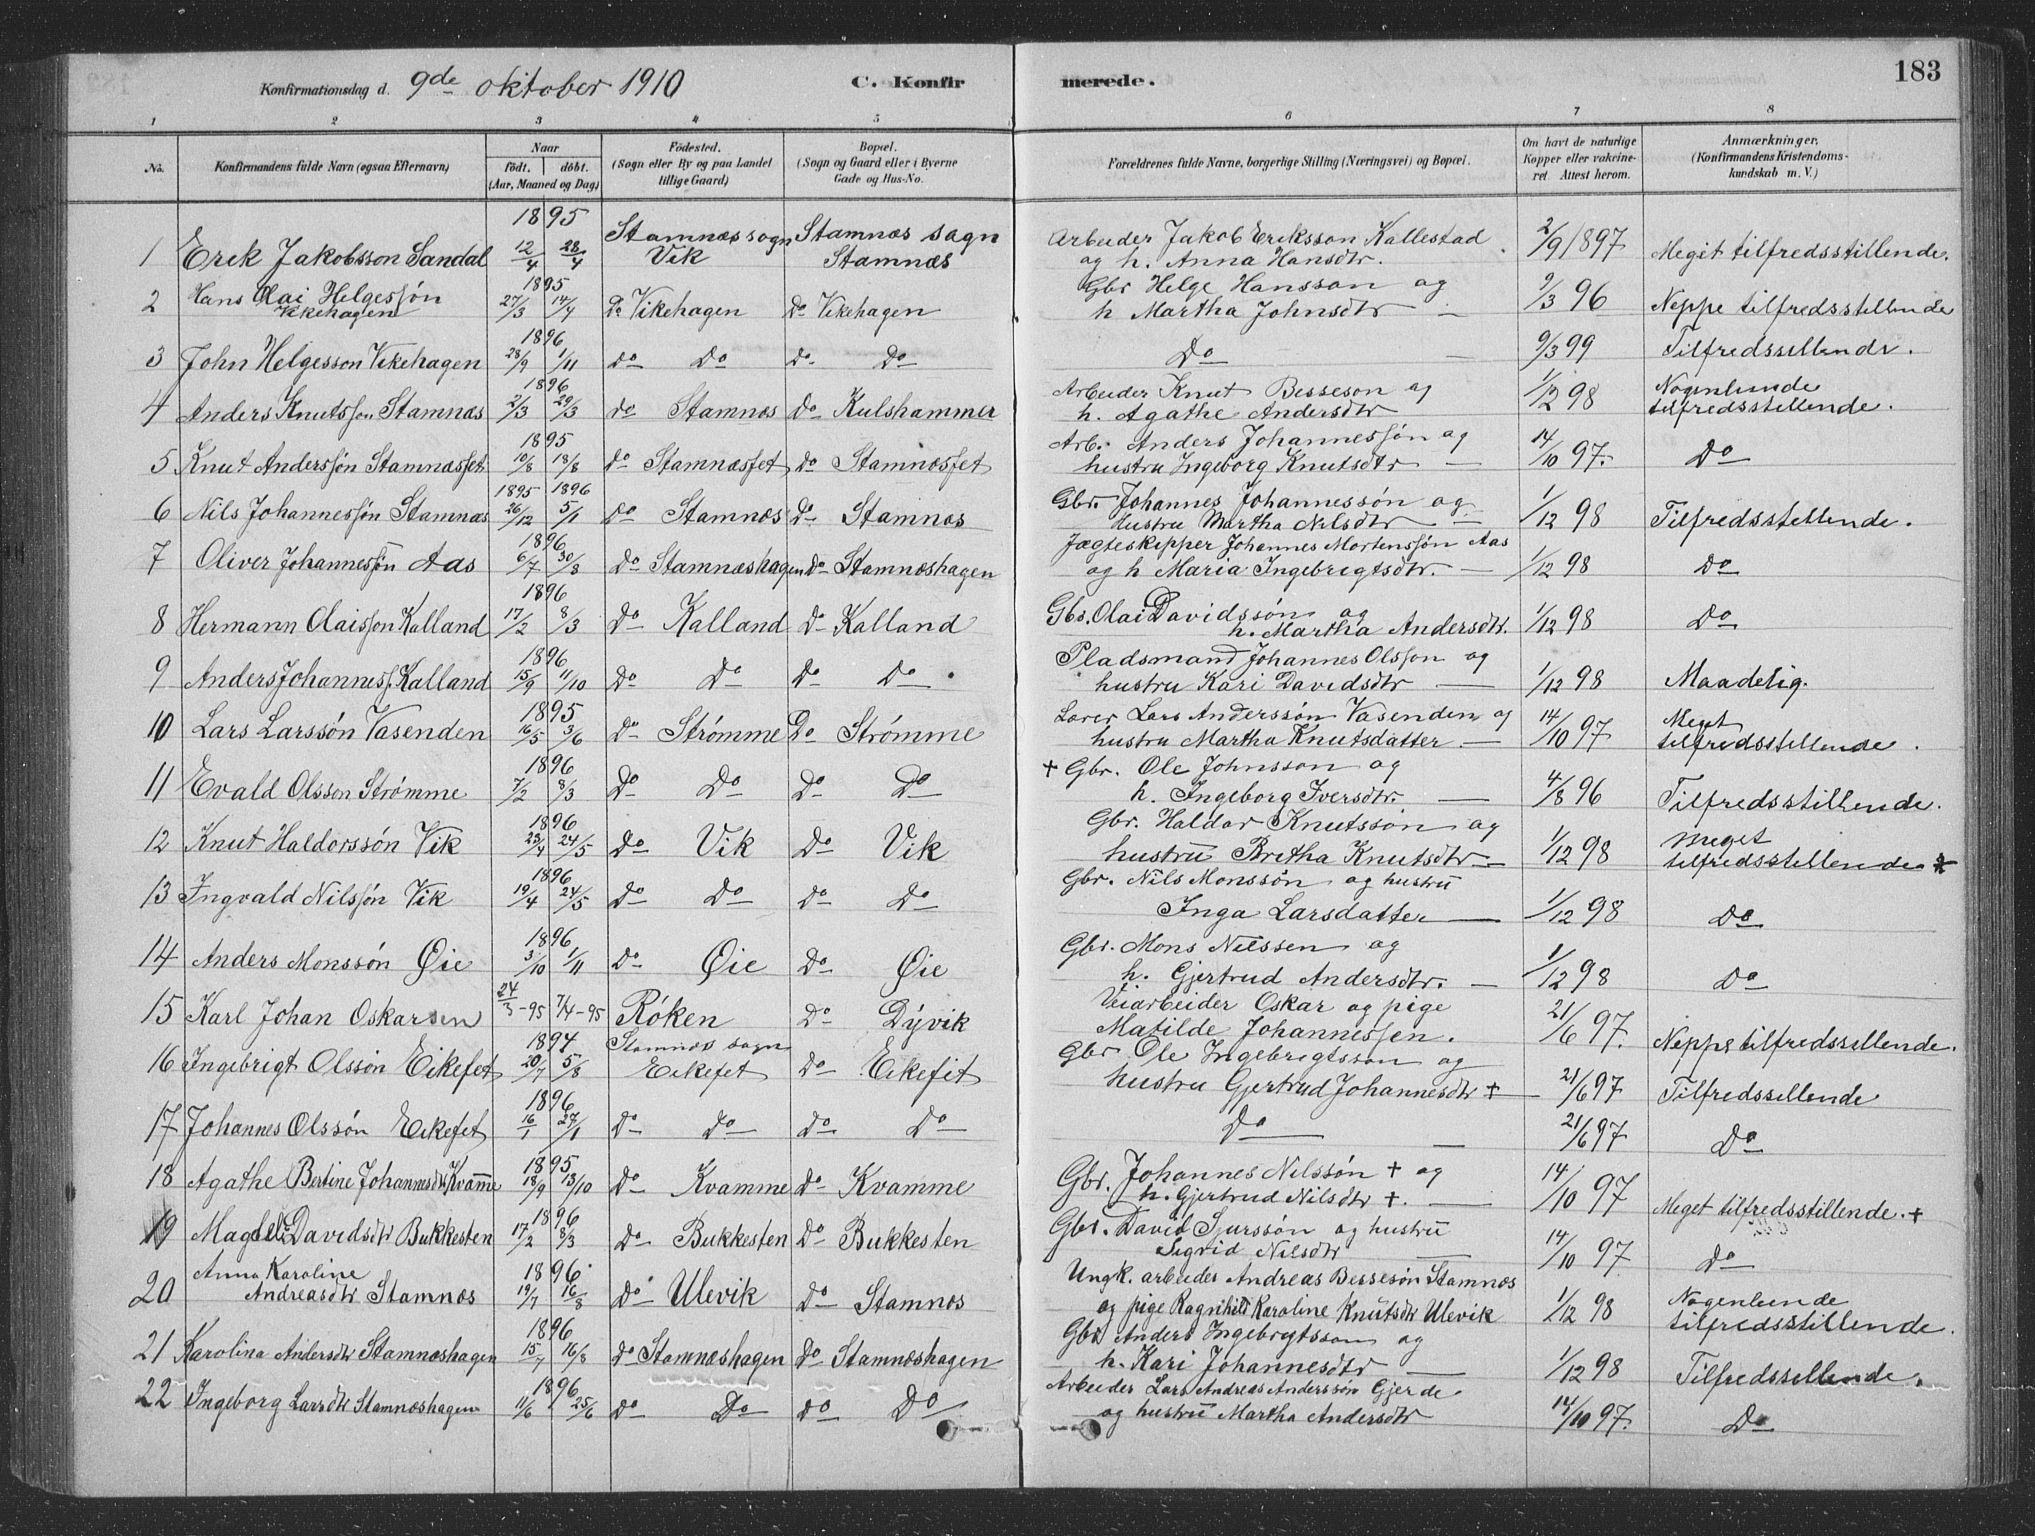 Konfirmationsdag d. 9de oktober 1910 C. Konfirmerede. 183
1 2 3 4 5 6 7 8
No. Konfirmandens fulde Navn (ogsaa Efternavn) Naar født. døbt. (Aar, Maaned og Dag) Fødested. (Sogn eller By og paa Landet tillige Gaard) Bopæl. (Sogn og Gaard eller i Byerne Gade og Hus-No. Forældrenes fulde Navne, borgerlige Stilling (Næringsvei) og Bopæl. Om havt de naturlige Kopper eller vakcineret. Attest herom. Anmærkninger. (Konfirmandens Kristendomskundskab m. V.)
1 Erik Jakobsson Sandal 1895 12/4 28/4 Stamnæs sogn Vik Stamnæs sogn Stamnæs Arbeider Jakob Eriksson Kallestad og h. Anna Hansdtr. 2/9 1897 Meget tilfredsstillende.
2 Hans Olai Helgessøn Vikehagen 1895 27/3 14/4 Do Vikehagen Do Vikehagen Gbr Helge Hansson og h Martha Johnsdtr — 9/3 96 Neppe tilfredsstillende
3 John Helgesson Vikehagen 1896 28/9 1/11 Do Do Do Do Do — 9/3 99 Tilfredssillende.
4 Anders Knutsson Stamnæs 1896 2/3 29/3 Do Stamnæs Do Kulshammer Arbeider Knut Besseson og h. Agathe Andersdtr 1/12 98 Nogenlunde tilfredsstillende.
5 Knut Anderssøn Stamnæsfet 1895 10/8 18/8 Do Stamnæsfet Do Stamnæsfet Arb. Anders Johannessøn og hustru Ingeborg Knutsdtr — 14/10 97. Do
6 Nils Johannessøn Stamnæs 1895 26/12 1896 5/1 Do Stamnæs Do Stamnæs Gbr. Johannes Johannessøn og hustru Martha Nilsdtr — 1/12 98 Tilfredsstillende.
7 Oliver Johannessøn Aas 1896 6/7 30/8 Do Stamnæshagen Do Stamnæshagen Jægteskipper Johannes Mortenssøn Aas og h Maria Ingebrigtsdtr. — 1/12 98 Do
8 Hermann Olaisson Kalland 1896 17/2 8/3 Do Kalland Do Kalland Gbr. Olai Davidssøn og h. Martha Andersdtr. 1/12 98 Do
9 Anders Johanness. Kalland 1896 15/9 11/10 Do Do Do Do Pladsmand Johannes Olsson og hustru Kari Davidsdtr — 1/12 98 Maadelig.
10 Lars Larssøn Vasenden 1895 16/5 3/6 Do Strømme Do Strømme Lærer Lars Anderssøn Vasenden og hustru Martha Knutsdatter. — 14/10 97 Meget tilfredsstillende.
11 Evald Olsson Strømme 1896 7/2 8/3 Do Do Do Do + Gbr. Ole Johnsson og h. Ingeborg Iversdtr. — 4/8 96 Tilfredsstillende.
12 Knut Haldorssøn Vik 1896 23/4 24/5 Do Vik Do Vik Gbr. Haldor Knutssøn og hustru Britha Knutsdtr — 1/12 98 Meget tilfredsstillende
13 Ingvald Nilssøn Vik 1896 19/4 24/5 Do Do Do Do Gbr. Nils Monssøn og hustru Inga Larsdatter — 1/12 98 Do
14 Anders Monssøn Øie 1896 3/10 1/11 Do Øie Do Øie Gbr. Mons Nilssen og h. Gjertrud Andersdtr. — 1/12 98 Do
15 Karl Johan Oskarsen 24/3-95 7/4-95 Røken Do Dyvik Veiarbeider Oskar og pige Matilde Johannessen. 21/6 97. Neppe tilfredssillende.
16 Ingebrigt Olssøn Eikefet 1894 20/7 5/8 Stamnæs sogn Eikefet Do Eikefet Gbr Ole Ingebrigtsson og hustru Gjertrud Johannesdtr + — 21/6 97 Tilfredssillende
17 Johannes Olssøn Eikefet 1896 16/1 27/1 Do Do Do Do Do — 21/6 97 Do
18 Agathe Bertine Johannesdtr Kvamme 1895 18/9 13/10 Do Kvamme Do Kvamme Gbr. Johannes Nilssøn + og h. Gjertrud Nilsdtr +. — 14/10 97 Meget tilfredsstillende. +
19 Magdeli Davidsdtr Bukkesten 1896 17/2 8/3 Do Bukkesten Do Bukkesten Gbr. David Sjurssøn og hustru Sigrid Nilsdtr — 14/10 97. Do
20 Anna Karoline Andreasdtr Stamnæs 1896. 19/7 16/8 Do Ulevik Do Stamnæs Ungk. arbeider Andreas Bessesøn Stamnæs og pige Ragnhild Karoline Knutsdtr Ulevik 1/12 98 Nogenlunde tilfredsstillende.
21 Karolina Andersdtr Stamnæshagen 1896 15/7 16/8 Do Stamnæshagen Do Stamnæshagen Gbr. Anders Ingebrigtsson og h. Kari Johannesdtr — 1/12 98 Tilfredssillende.
22 Ingeborg Larsdtr Stamnæshagen 1896 11/6 25/6 Do Do Do Do Arbeider Lars Andreas Anderssøn Gjerde og hustru Martha Andersdtr 14/10 97. Do